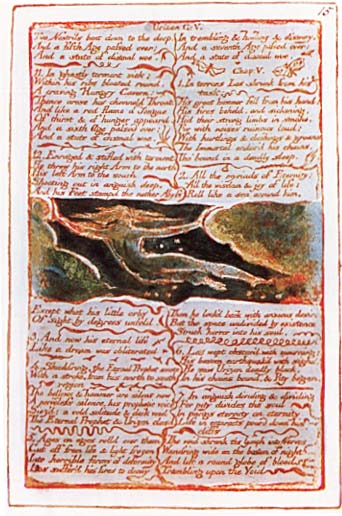 15
Urizen C. V.
The Nostrils bent down to the deep.
And a fifth Age passed over;
And a state of dismal woe.
11. In ghastly torment sick;
Within his ribs bloated round,
A craving Hungry Cavern;
Thence arose his channeld Throat,
And like a red flame a Tongue
Of thirst & of hunger appeard
And a sixth Age passed over:
And a state of dismal woe.
12. Enraged & stifled with torment
He threw his right Arm to the north
His left Arm to the south
Shooting out in anguish deep,
And his Feet stampd the nether Abyss
In trembling & howling & dismay.
And a seventh Age passed over:
And a state of dismal woe.
Chap: V.
1. In terrors Los shrunk from his
task:
His great hammer fell from his hand:
His fires beheld, and sickening,
Hid their strong limbs in smoke.
For with noises ruinous loud;
With hurtlings & clashings & groans
The Immortal endur'd his chains,
Tho' bound in a deadly sleep.
2. All the myriads of Eternity:
All the wisdom & joy of life:
Roll like a sea around him,
Except what his little orbs
Of sight by degrees unfold.
3. And now his eternal life
Like a dream was obliterated
4. Shudd'ring, the Eternal Prophet smote
With a stroke, from his north to south
region
The bellows & hammer are silent now
A nerveless silence, his prophetic voice
Siez'd; a cold solitude & dark void
The Eternal Prophet & Urizen clos'd
5. Ages on ages rolld over them
Cut off from life & light frozen
Into horrible forms of deformity
Los suffer'd his fires to decay
Then he look'd back with anxious desire
But the space undivided by existence
Struck horror into his soul.
6. Los wept obscur'd with mourning:
His bosom earthquak'd with sighs;
He saw Urizen deadly black,
In his chains bound, & Pity began,
7. In anguish dividing & dividing
For pity divides the soul
In pangs eternity on eternity
Life in cataracts pourd down his cliffs
The void shrunk the lymph into Nerves
Wand'ring wide on the bosom of night
And left a round globe of blood
Trembling upon the Void